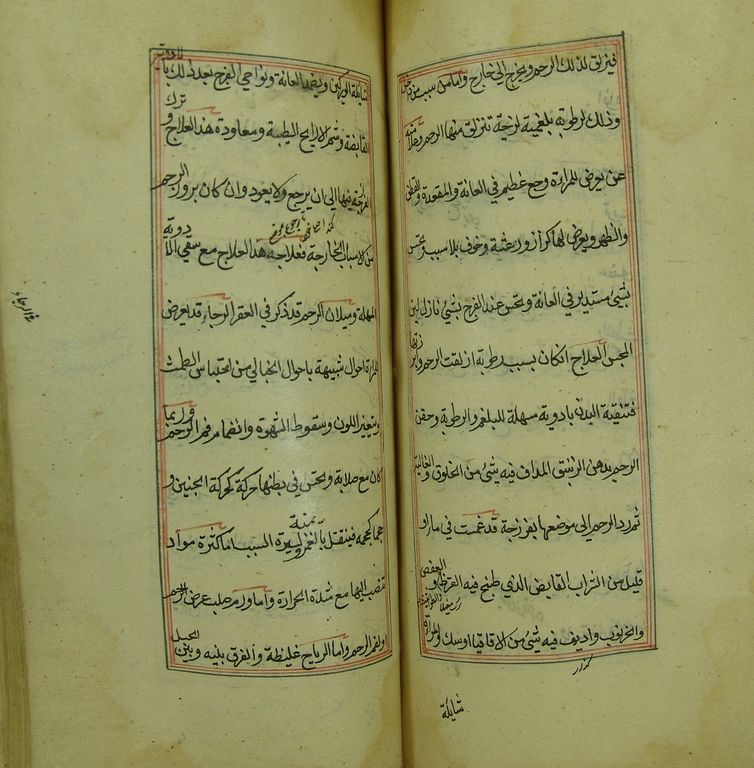 فيزلق لذلك الرحم ويخرج الى خارج واما من سبب من داخل
وذلك لرطوبة بلغمية لزجة تنزلق منها الرحم وعلامته
عن يعرض للمراءة وجع عظيم في العانة والمقعدة والقطن
والظهر ويعرض لها كزاز ورعشة وخوف بلا سبب وتحس
بشئ مستدير في العانة وتحس عند الفرج بشئ نازل لين
المجس العلاج ان كان بسبب رطوبة ازلقت الرحم
فتنقية البدن بادوية مسهلة للبلغم والرطوبة وحقن
الرحم بدهن الزنبق المداف فيه شئ من الخلوق والغالية
ثم رد الرحم الى موضعها بفرزجة قد غمست في ماء
قليل من الشراب القابض الذي طبخ فيه القرظ والعفص
والخرنوب واديف فيه شئ من الاقاقيا او سك
شايكة
شايكة الوركين ويضمد العانة ونواحي الفرج بعد ذلك بالادوية
القابضة وشم الارايح الطيبة ومعاودة هذا العلاج وترك
الفرزجة فيها الى ان يرجع ولا يعود وان كان بروز الرحم
من الاسباب الخارجة فعلاجه هذا العلاج مع سقي الادوية
المسهلة وميلان الرحم قد ذكر في العقر الرجاء قد يعرض
للمراة احوال شبيهة باحوال الحبالي من احتباس الطمث
وتغيير اللون وسقوط الشهوة وانضمام فم الرحم وربما
كان مع صلابة وتحس في بطنها حركة كحركة الجنين و
حجما كحجمه فينتقل بالغمز يمنة ويسرة السبب اما كثرة مواد
تنصب اليها مع شدة الحرارة واما ورم صلب عرض للرحم
او لفم الرحم واما الرياح غليظة والفرق بينه وبين الحبل
في الرجاء